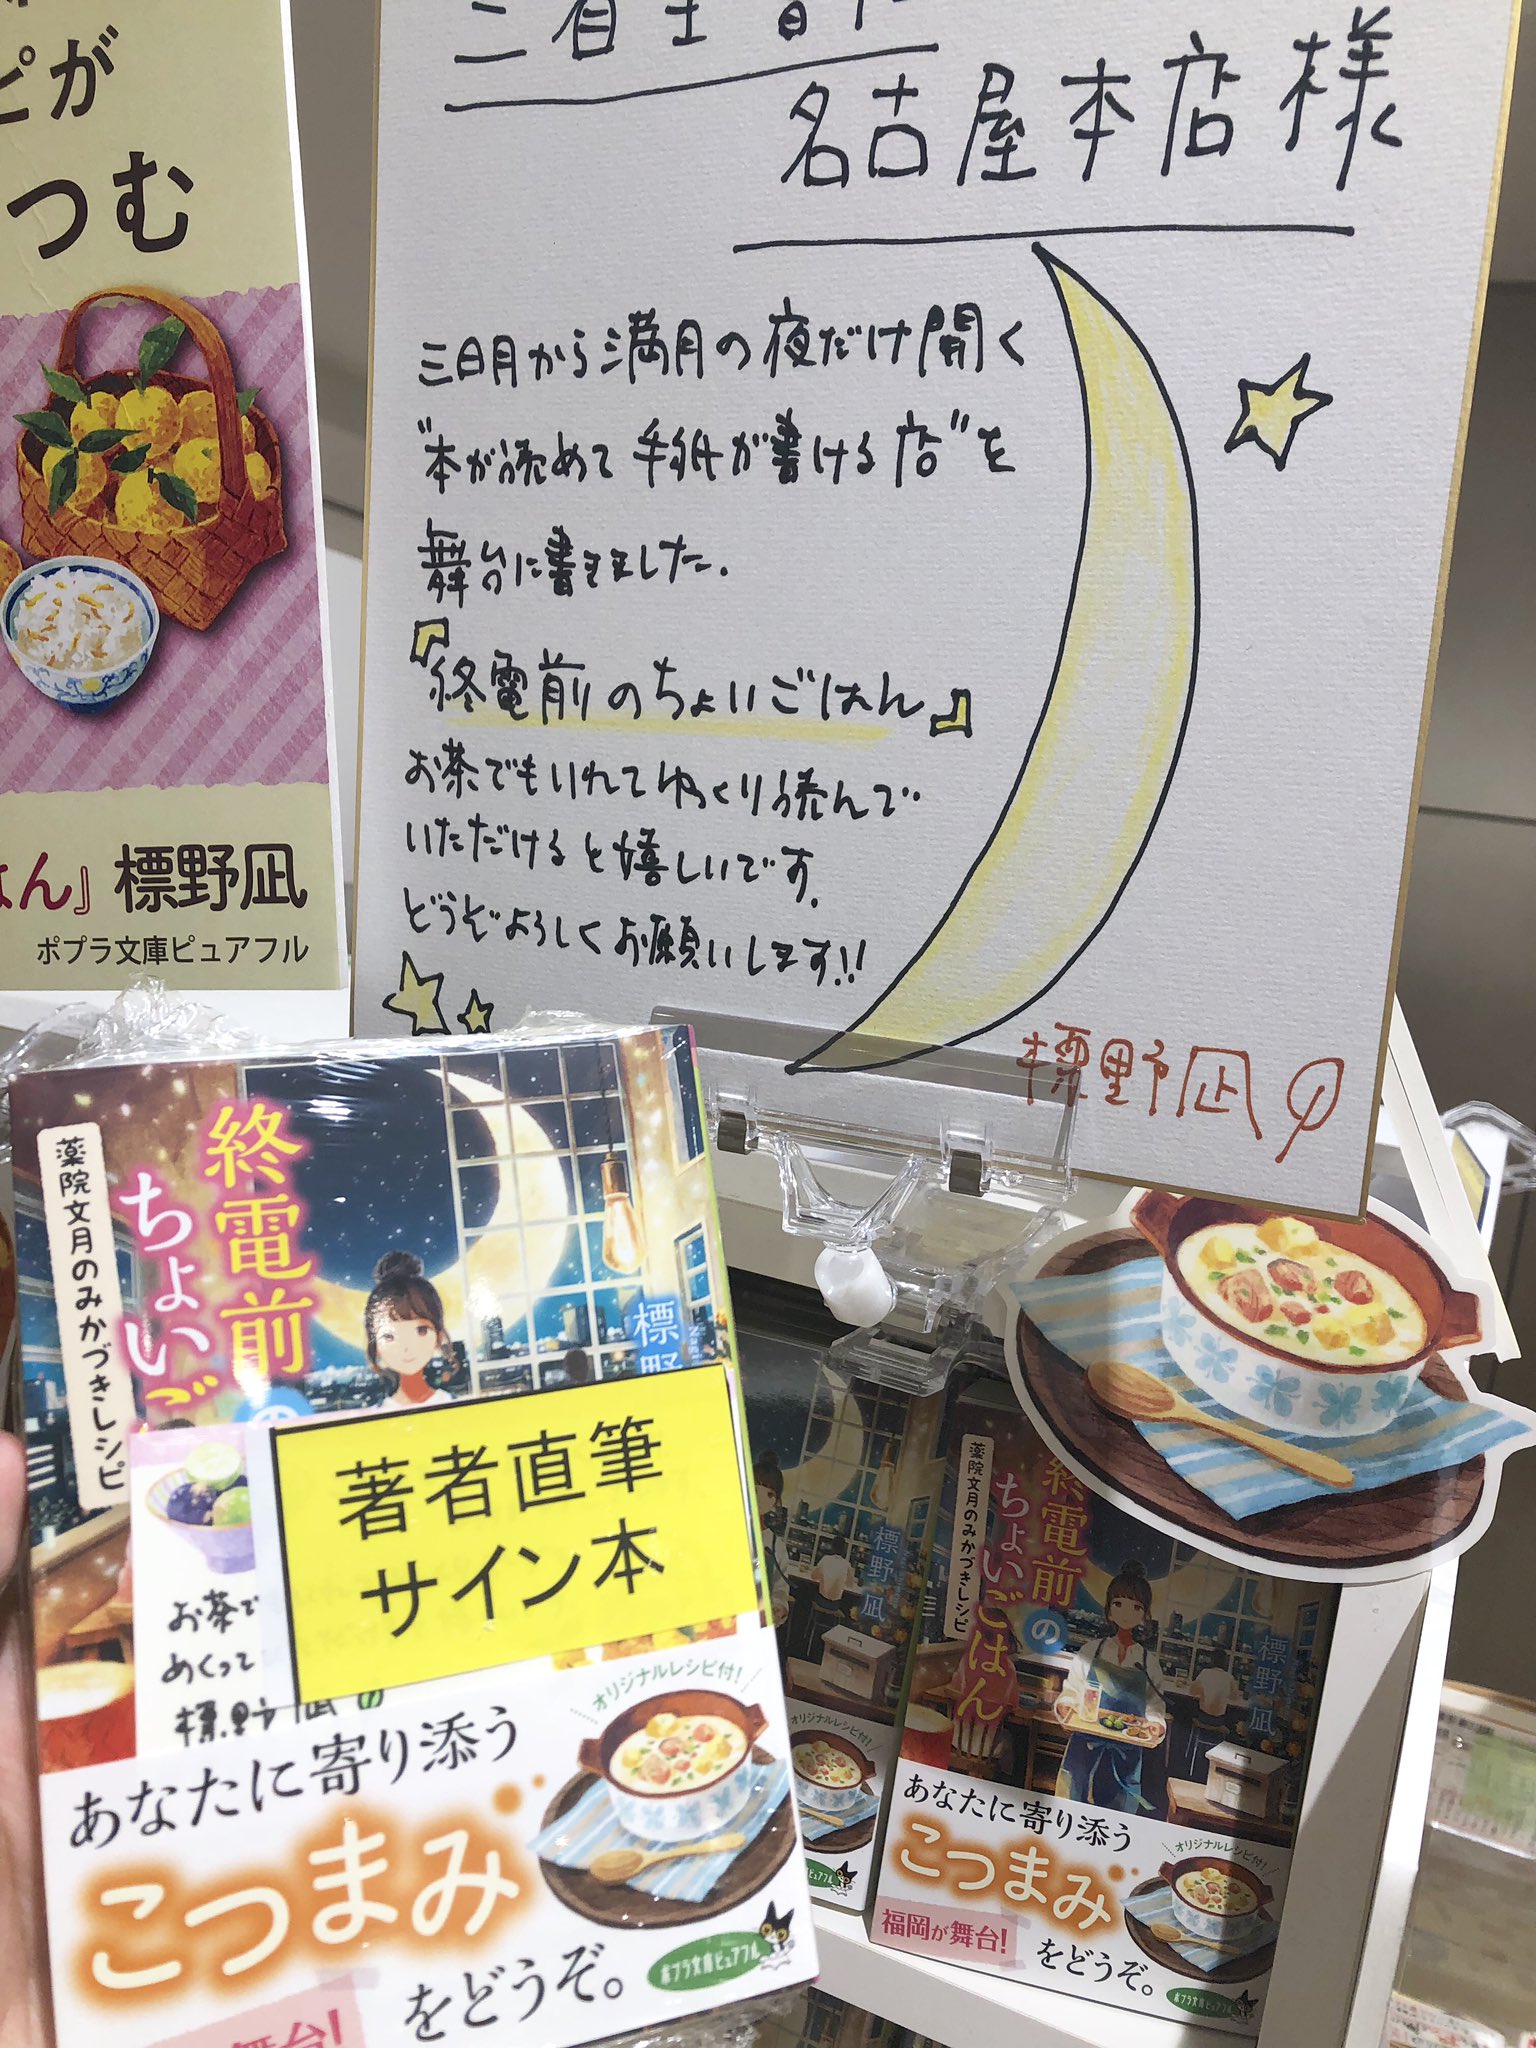 ピが
つむ
はん』標野凪
ポプラ文庫ピュアフル
三省堂書店
名古屋本店様
三日月から満月の夜だけ開く
"本が読めて手紙が書ける店"を
舞台に書きました.
『終電前のちょいごはん』
お茶でもいれてゆっくり読んで
いただけると嬉しいです.
どうぞよろしくお願いします!!
標野凪
終電前の
ちょいご
薬院文月のみかづきレシピ
標野
著者直筆
サイン本
お茶で
めくって
標野凪
オリジナルレシピ付!
あなたに寄り添う
こつまみ
をどうぞ。
ポプラ文庫ピュアフル
舞台!
標野凪
オリジナルレシピ付!
終電前の
ちょいごはん
薬院文月のみかづきレシピ
標野凪
あなたに寄り添う
オリジナルレシピ付!
こつまみ
福岡が舞台!
をどうぞ。
ポプラ文庫ピュアフル